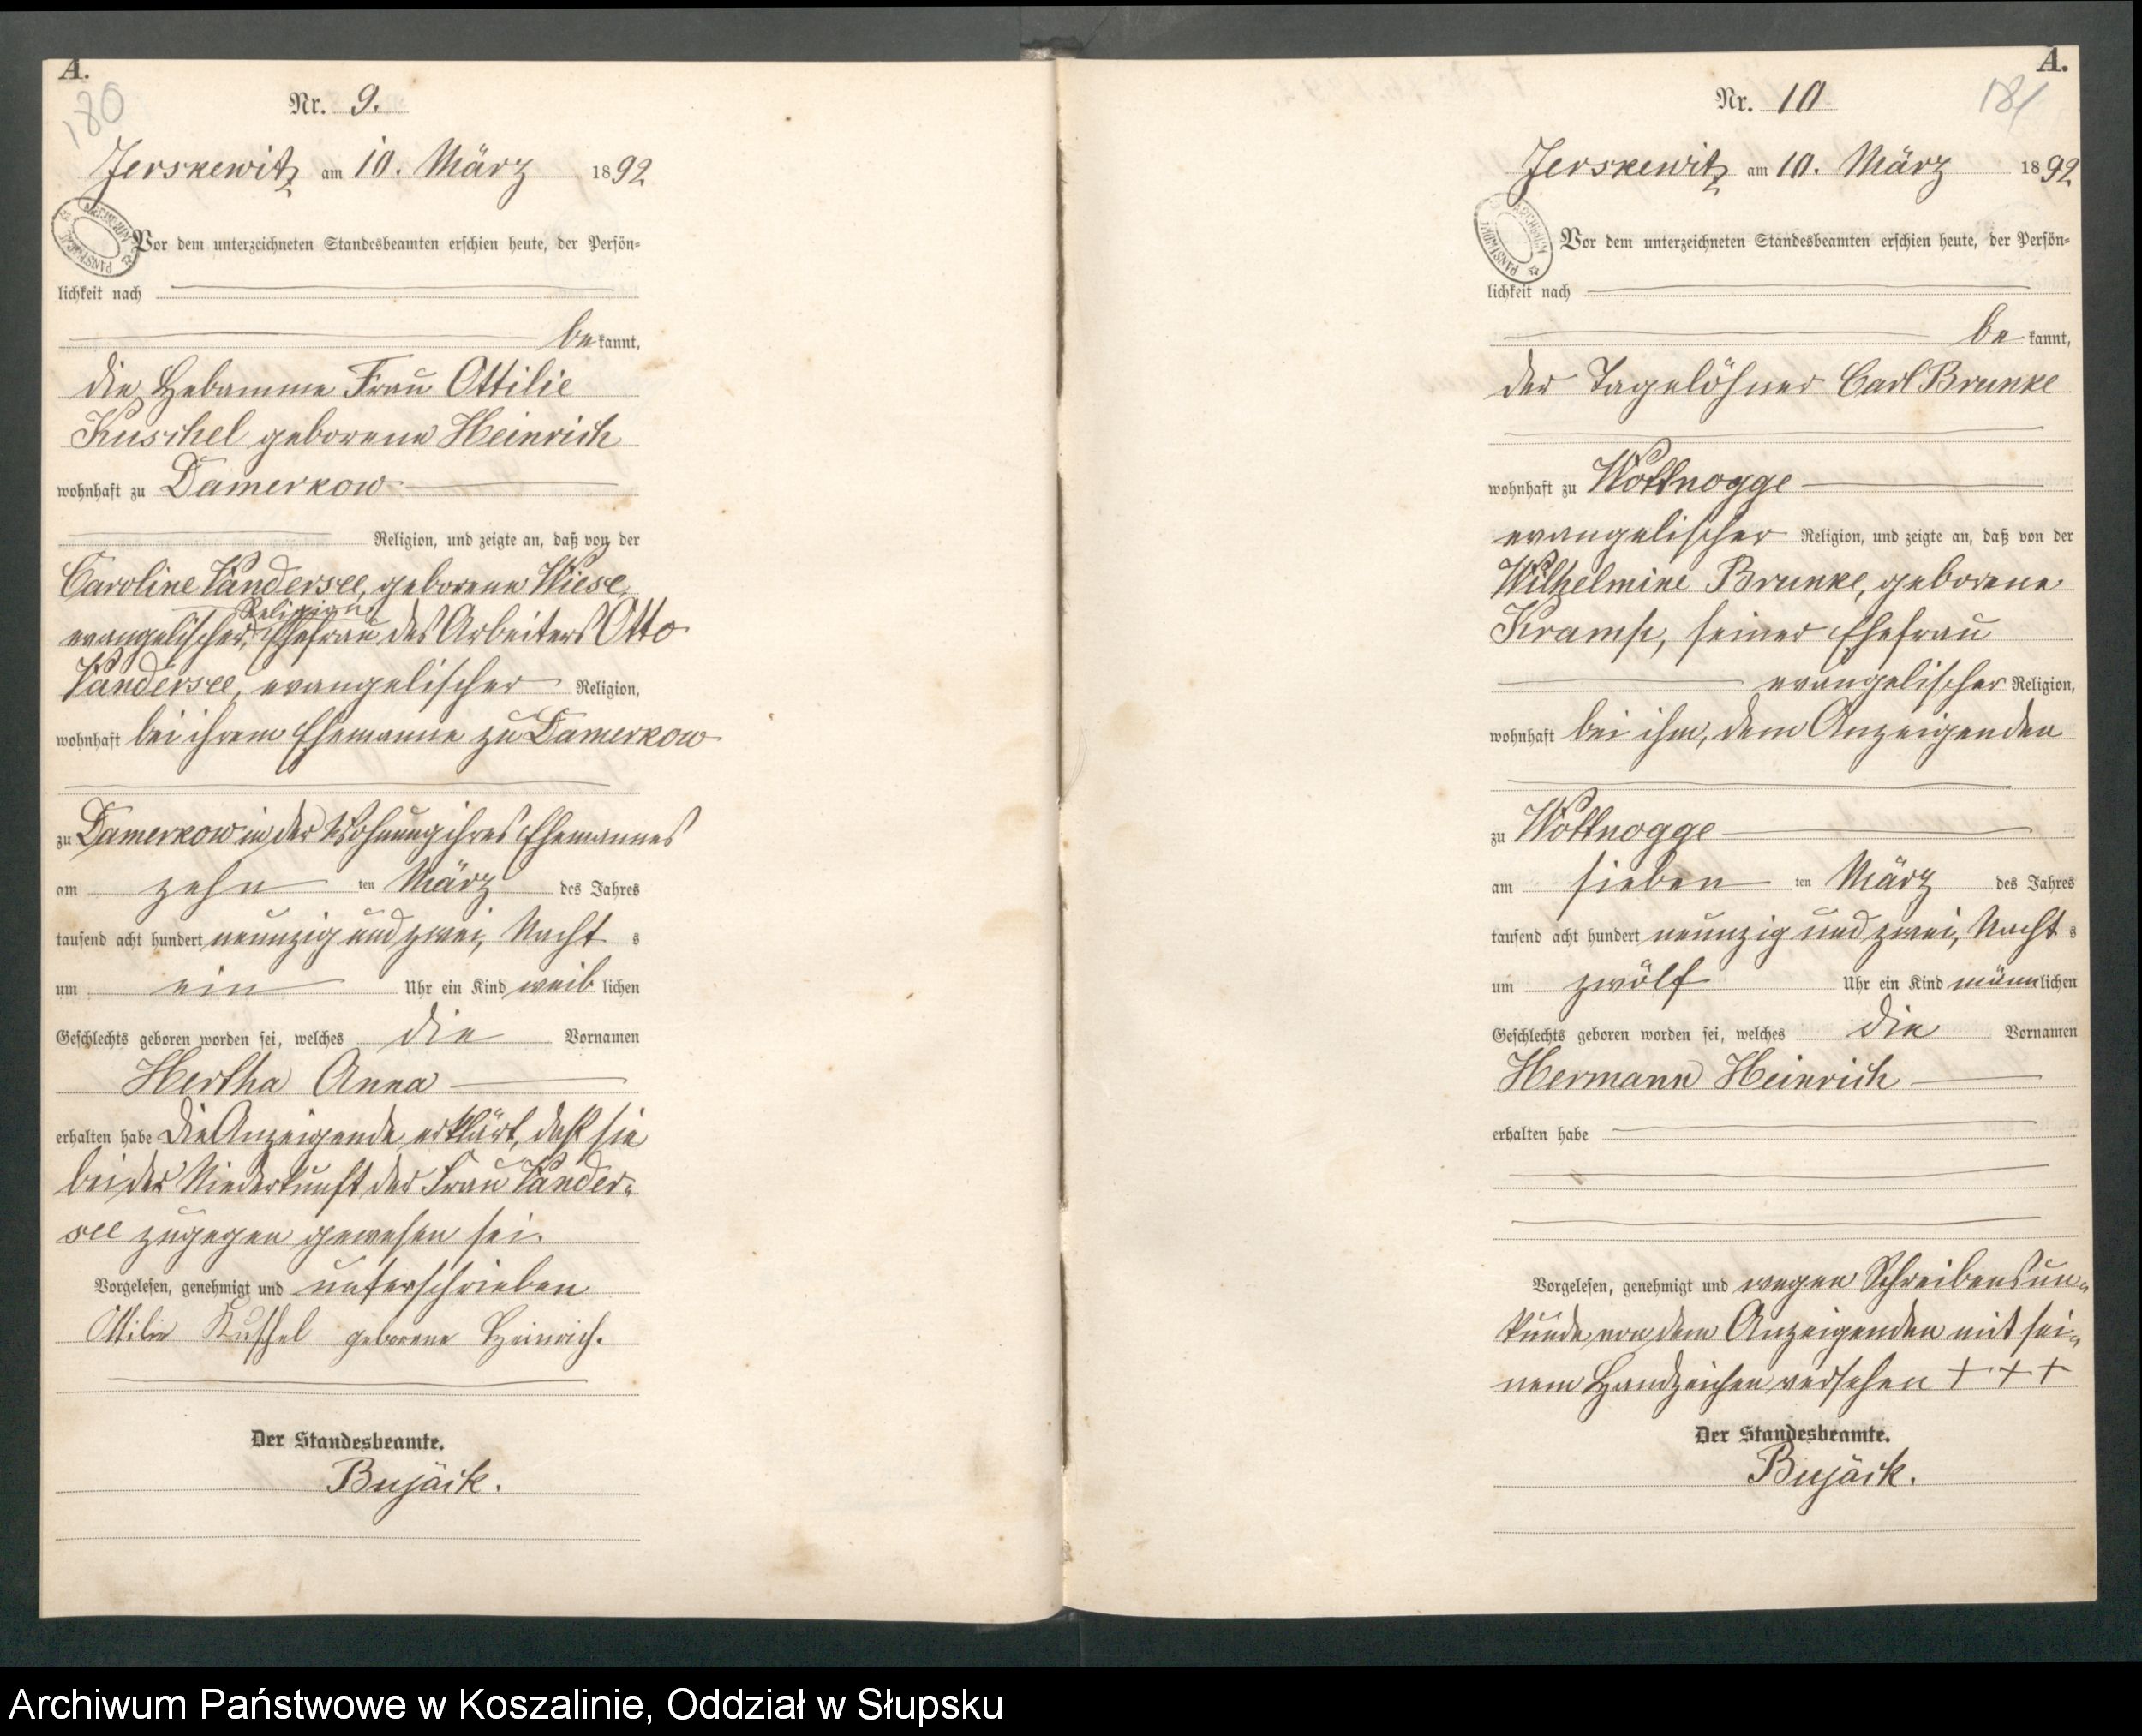 A.
180
Nr. 9.
Jerskewitz am 10. März 1892
ARCHIWUM PAŃSTWOWE
Vor dem unterzeichneten Standesbeamten erschien heute, der Persön=
lichkeit nach
be kannt,
die Hebamme Frau Ottilie
Kuschel geborene Heinrich
wohnhaft zu Damerkow
Religion, und zeigte an, daß von der
Caroline Vandersee, geborene Wiese,
Religion
evangelischer, Ehefrau des Arbeiters Otto
Vandersee, evangelischer Religion,
wohnhaft bei ihrem Ehemanne zu Damerkow
zu Damerkow in der Wohnung ihres Ehemannes
am zehn ten März des Jahres
tausend acht hundert neunzig und zwei, Nacht s
um ein Uhr ein Kind weib lichen
Geschlechts geboren worden sei, welches die Vornamen
Hertha Anna
erhalten habe Die Anzeigende erklärt, daß sie
bei der Niederkunft der Frau Vander=
see zugegen gewesen sei.
Vorgelesen, genehmigt und unterschrieben
Ottilie Kuschel geborene Heinrich.
Der Standesbeamte.
Bujäck.
A.
181
Nr. 10
Jerskewitz am 10. März 1892
ARCHIWUM PAŃSTWOWE
Vor dem unterzeichneten Standesbeamten erschien heute, der Persön=
lichkeit nach
be kannt,
der Tagelöhner Carl Brunke
wohnhaft zu Wottnogge
evangelischer Religion, und zeigte an, daß von der
Wilhelmine Brunke, geborene
Kramp, seiner Ehefrau
evangelischer Religion,
wohnhaft bei ihm, dem Anzeigenden
zu Wottnogge
am sieben ten März des Jahres
tausend acht hundert neunzig und zwei, Nacht s
um zwölf Uhr ein Kind männ lichen
Geschlechts geboren worden sei, welches die Vornamen
Hermann Heinrich
erhalten habe
Vorgelesen, genehmigt und wegen Schreibensun=
kunde von dem Anzeigenden mit sei=
nem Handzeichen versehen + + +
Der Standesbeamte.
Bujäck.
Archiwum Państwowe w Koszalinie, Oddział w Słupsku